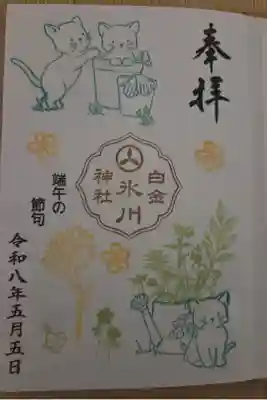 奉拝
白金
氷川
神社
端午の
節句
令和八年五月五日